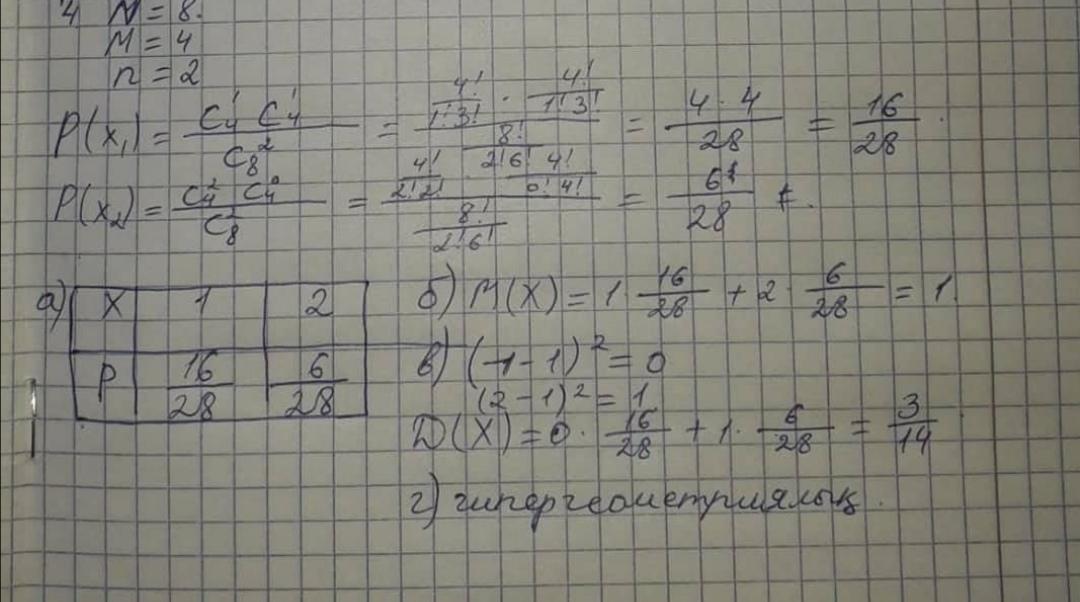 4 N = 8.
M = 4
n = 2
P(x₁) = (C₄¹ C₄¹)/(C₈²) = (4!/(1!3!) · 4!/(1!3!))/(8!/(2!6!)) = (4·4)/28 = 16/28.
P(x₂) = (C₄² C₄⁰)/(C₈²) = (4!/(2!2!) · 4!/(0!4!))/(8!/(2!6!)) = 6/28
а) X 1 2
P 16/28 6/28
б) M(X) = 1 · 16/28 + 2 · 6/28 = 1.
в) (1-1)² = 0
(2-1)² = 1
D(X) = 0 · 16/28 + 1 · 6/28 = 3/14
г) гипергеометриялық.